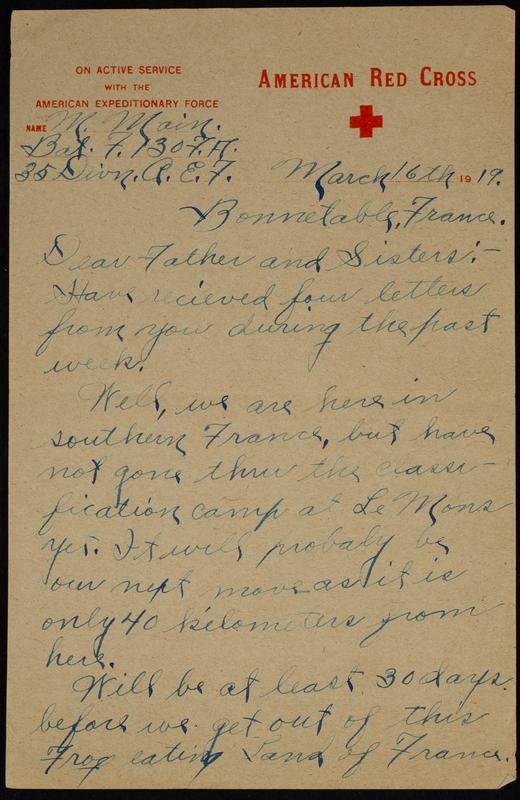 ON ACTIVE SERVICE
WITH THE
AMERICAN EXPEDITIONARY FORCE
AMERICAN RED CROSS
NAME M. Main.
Bat. F. 130 F.A.
35 Divn. A. E. F.
March 16th 1919.
Bonnetable, France.
Dear Father and Sisters:-
Have recieved four letters
from you during the past
week.
Well, we are here in
southern France, but have
not gone thru the classi-
fication camp at Le Mons
yet. It will probaly be
our next move as it is
only 40 kilometers from
here.
Will be at least 30 days
before we get out of this
Frog eating Land of France.